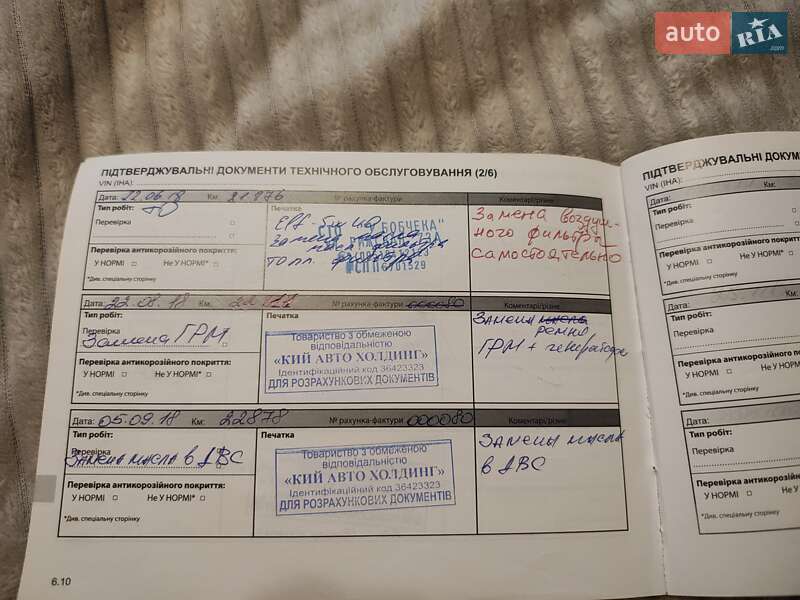 auto RIA .com
ПІДТВЕРДЖУВАЛЬНІ ДОКУМЕНТИ ТЕХНІЧНОГО ОБСЛУГОВУВАННЯ (2/6)
VIN (ІНА):
Дата: 22.06.18 Км: 21976 № рахунка-фактури Коментарі/різне
Тип робіт: ТО
Печатка
Перевірка
Перевірка антикорозійного покриття:
У НОРМІ Не У НОРМІ*
*Див. спеціальну сторінку
Замена воздуш-
ного фильтра
самостоятельно
Дата: 22.08.18 Км: № рахунка-фактури 000080 Коментарі/різне
Тип робіт:
Печатка
Перевірка
Замена ГРМ
Перевірка антикорозійного покриття:
У НОРМІ Не У НОРМІ*
*Див. спеціальну сторінку
Товариство з обмеженою
відповідальністю
«КИЙ АВТО ХОЛДИНГ»
Ідентифікаційний код 36423323
ДЛЯ РОЗРАХУНКОВИХ ДОКУМЕНТІВ
Замена масла
ремня
ГРМ + генератора
Дата: 05.09.18 Км: 22878 № рахунка-фактури 000080 Коментарі/різне
Тип робіт:
Печатка
Перевірка
Замена масла в ДВС
Перевірка антикорозійного покриття:
У НОРМІ Не У НОРМІ*
*Див. спеціальну сторінку
Товариство з обмеженою
відповідальністю
«КИЙ АВТО ХОЛДИНГ»
Ідентифікаційний код 36423323
ДЛЯ РОЗРАХУНКОВИХ ДОКУМЕНТІВ
Замена масла
в ДВС
6.10
ПІДТВЕРДЖУВАЛЬНІ
VIN (ІНА):
Дата: Км:
Тип робіт:
Перевірка
Перевірка антикорозійного покриття:
У НОРМІ Не У НОРМІ*
*Див. спеціальну сторінку
Дата: Км:
Тип робіт:
Перевірка
Перевірка антикорозійного покриття:
У НОРМІ Не У НОРМІ*
*Див. спеціальну сторінку
Дата: Км:
Тип робіт:
Перевірка
Перевірка антикорозійного покриття:
У НОРМІ Не У НОРМІ*
*Див. спеціальну сторінку